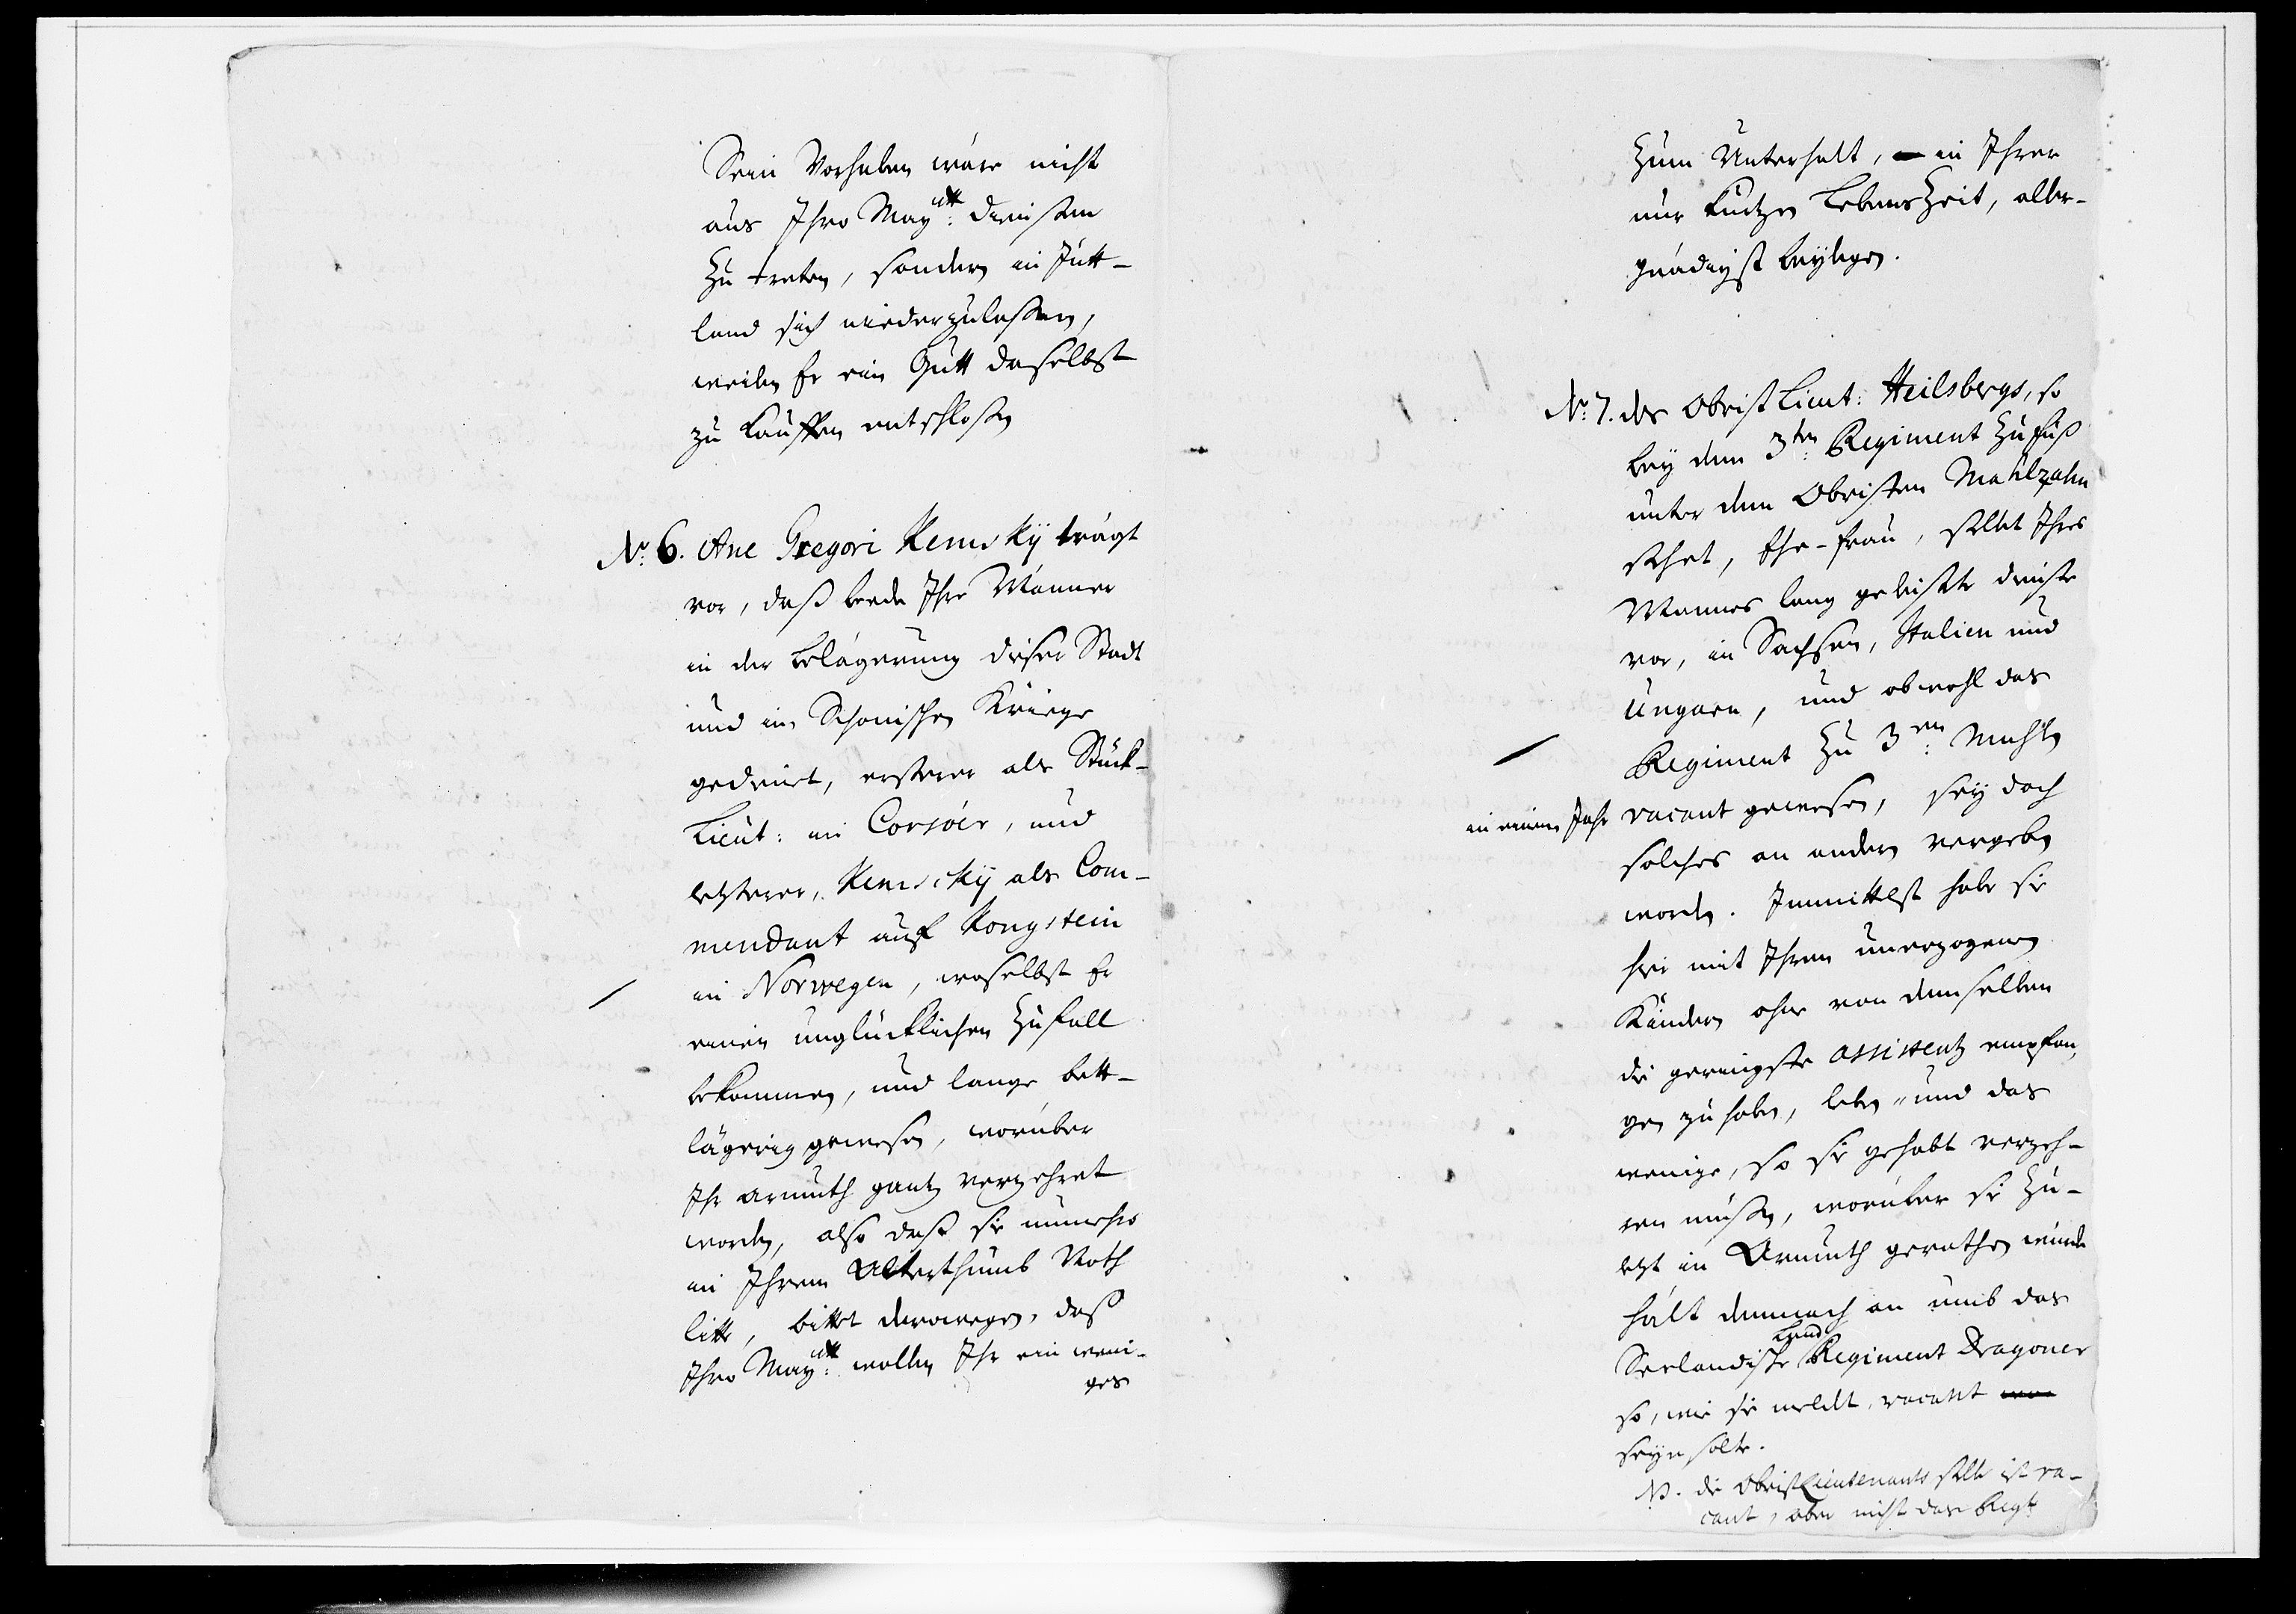 Sein Vorhaben wäre nicht
aus Ihro Maytt: diensten
zu treten, sondern in Jütt-
land sich niederzulaßen,
weilen Er ein Gutt daselbst
zu kauffen entschloßen
No. 6. Ane Gregori Kemskÿ trägt
vor, daß beede Ihre Männer
in der belägerung dieser Stadt
und im Schonischen Kriege
gedient, ersterer als Stück-
Lieut: in Corsöer, und
letzterer, Kemskÿ als Com-
mendant auf Kongstein
in Norwegen, woselbst Er
einen unglücklichen Zufall
bekommen, und lange bett-
lägerig gewesen, worüber
Ihr armuth gantz verzehret
worden, also daß sie nunmehro
in Ihrem Alterthumb Noth
litte, bittet derowegen, daß
Ihro Maytt: wollen Ihr ein weni-
ges
zum Unterhalt, in Ihrer
nur kurtzen LebensZeit, aller-
gnädigst beylegen.
No. 7. des Obrist Lieut: Heilsbergs, so
bey dem 3ten: Regiment zu fuß
unter dem Obristen Mahlzahn
stehet, Ehe-frau, stellet Ihres
Mannes lang geleistete dienste
vor, in Sachsen, Italien und
Ungarn, und obwohl das
Regiment zu 3en: Mahlen
in einem Jahr vacant gewesen, sey doch
solches an andern vergeben
worden. Immittelst habe sie
hie mit Ihren unerzogenen
Kindern ohne von demselben
die geringste assistentz empfan-
gen zu haben, leben und das
wenige, so sie gehabt verzeh-
ren müßen, worüber sie zu-
letzt in Armuth gerathen würde
hält demnach an umb das
Seelandische Land Regiment Dragoner
so, wie sie meldet, vacant
seyn solte.
NB. die ObristLieutenants stelle ist va-
cant, aber nicht das Regt